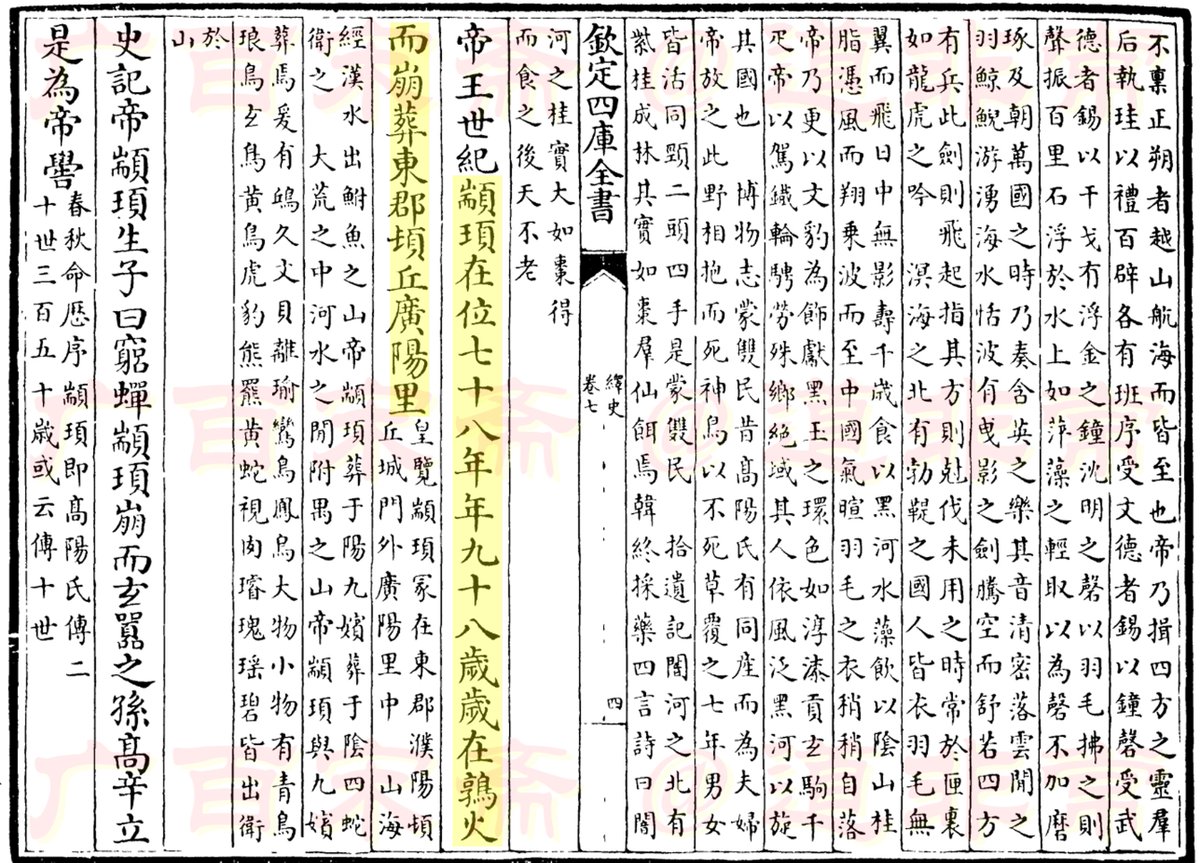 不禀正朔者越山航海而皆至也帝乃揖四方之靈羣
后執珪以禮百辟各有班序受文德者錫以鐘磬受武
德者錫以干戈有浮金之鐘沈明之磬以羽毛拂之則
聲振百里石浮於水上如萍藻之輕取以為磬不加磨
琢及朝萬國之時乃奏含英之樂其音清密落雲閒之
羽鯨鯢游湧海水恬波有曳影之劍騰空而舒若四方
有兵此劍則飛起指其方則尅伐未用之時常於匣裏
如龍虎之吟　溟海之北有勃鞮之國人皆衣羽毛無
翼而飛日中無影壽千歲食以黑河水藻飲以陰山桂
脂憑風而翔乗波而至中國氣暄羽毛之衣稍稍自落
帝乃更以文豹為飾獻黑玉之環色如淳漆貢玄駒千
疋帝以駕鐵輪騁勞殊鄉絕域其人依風泛黑河以旋
其國也　博物志蒙雙民昔高陽氏有同産而為夫婦
帝放之此野相抱而死神鳥以不死草覆之七年男女
皆活同頸二頭四手是蒙雙民　拾遺記闇河之北有
紫桂成林其實如棗羣仙餌焉韓終採藥四言詩曰闇
欽定四庫全書
繹史
卷七
四
河之桂實大如棗得
而食之後天不老
帝王世紀顓頊在位七十八年年九十八歲歲在鶉火
而崩葬東郡頓丘廣陽里
皇覽顓頊冢在東郡濮陽頓
丘城門外廣陽里中　山海
經漢水出鮒魚之山帝顓頊葬于陽九嬪葬于陰四蛇
衛之　大荒之中河水之閒附禺之山帝顓頊與九嬪
葬焉爰有䲭久文貝離瑜鸞鳥鳳鳥大物小物有青鳥
琅鳥玄鳥黄鳥虎豹熊羆黄蛇視肉璿瑰瑶碧皆出衛
於
山
史記帝顓頊生子曰窮蟬顓頊崩而玄囂之孫高辛立
是為帝嚳
春秋命厯序顓頊即高陽氏傳二
十世三百五十歲或云傳十世